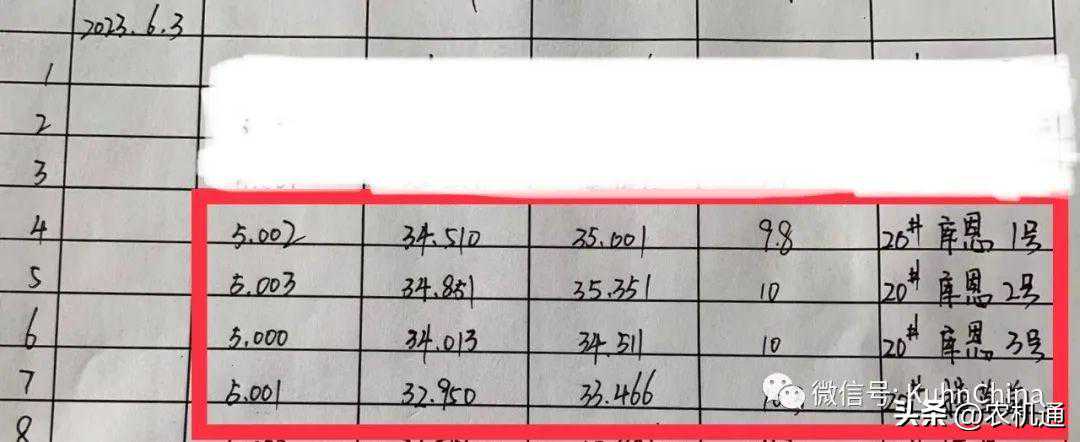 2023.6.3
1
2
3
4 5.002 34.510 35.001 9.8 20# 库恩 1号
5 5.003 34.851 35.351 10 20# 库恩 2号
6 5.000 34.013 34.511 10 20# 库恩 3号
7 5.001 32.950 33.466
微信号: KuhnChina
头条 @农机通
8